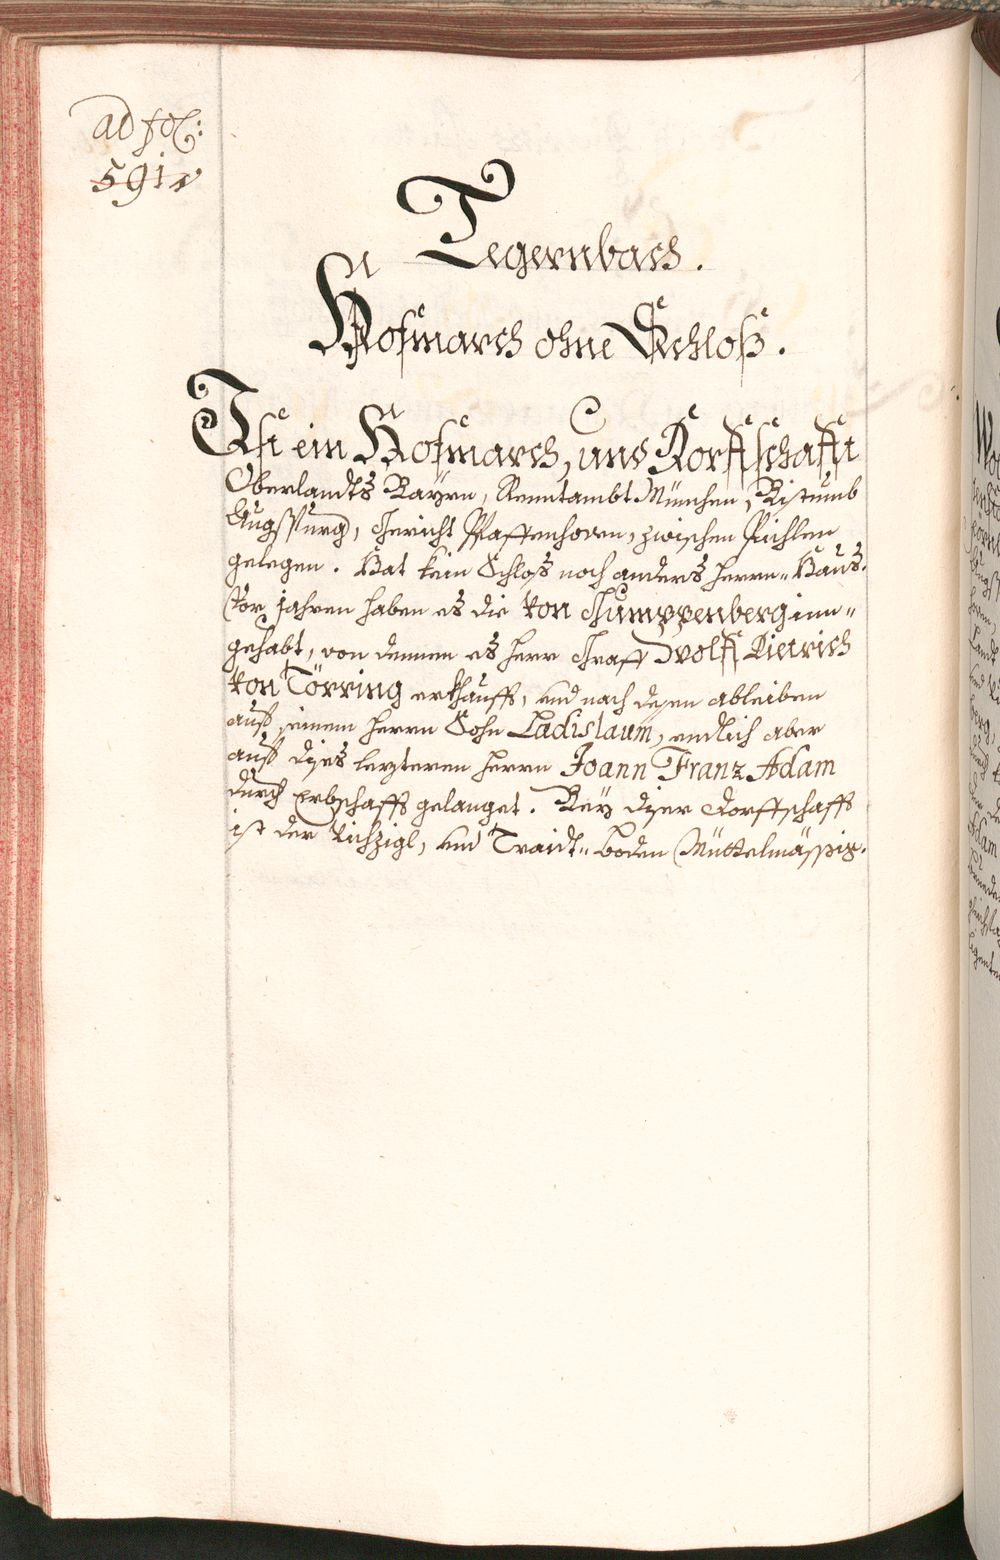 ad fol:
591v
Tegernbach.
Hofmarch ohne Schloß.
Ist ein Hofmarch, und Dorffschafft
Oberlandts Bayrn, Renntambt München, Bistumb
Augspurg, Gericht Pfaffenhoven, zwischen
gelegen. Hat kein Schloß noch anders herrn- Hauß.
Vor jahren haben es die von Gumppenberg inn-
gehabt, von dennen es herr Graff Wolff Dietrich
von Törring erkhaufft, und nach dessen ableiben
auf seinem herrn Sohn Ladislaum, endlich aber
auf dises lezteren herrn Joann Franz Adam
durch Erbschafft gelanget. Bey diser Dorffschafft
ist der Vichzigl, und Traidt- boden Mittelmässig.